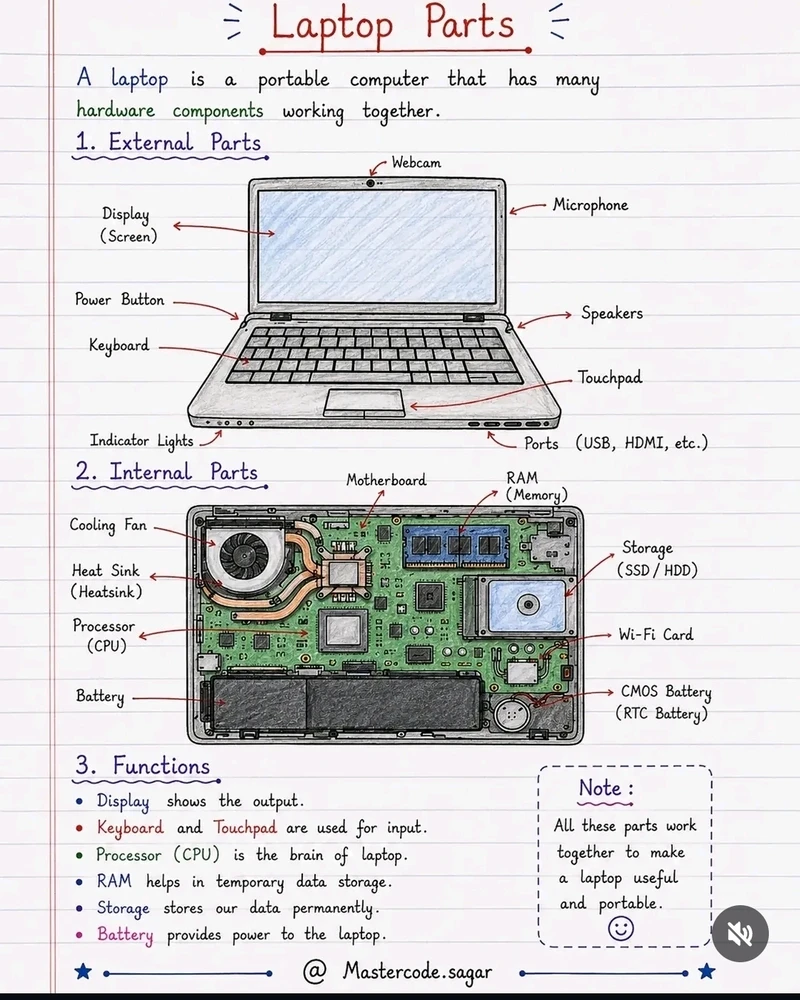 Laptop Parts
A laptop is a portable computer that has many
hardware components working together.
1. External Parts
Webcam
Display
(Screen)
Microphone
Power Button
Speakers
Keyboard
Touchpad
Indicator Lights
Ports (USB, HDMI, etc.)
2. Internal Parts
Motherboard
RAM
(Memory)
Cooling Fan
Heat Sink
(Heatsink)
Storage
(SSD / HDD)
Processor
(CPU)
Wi-Fi Card
Battery
CMOS Battery
(RTC Battery)
3. Functions
• Display shows the output.
• Keyboard and Touchpad are used for input.
• Processor (CPU) is the brain of laptop.
• RAM helps in temporary data storage.
• Storage stores our data permanently.
• Battery provides power to the laptop.
Note :
All these parts work
together to make
a laptop useful
and portable.
@ Mastercode.sagar